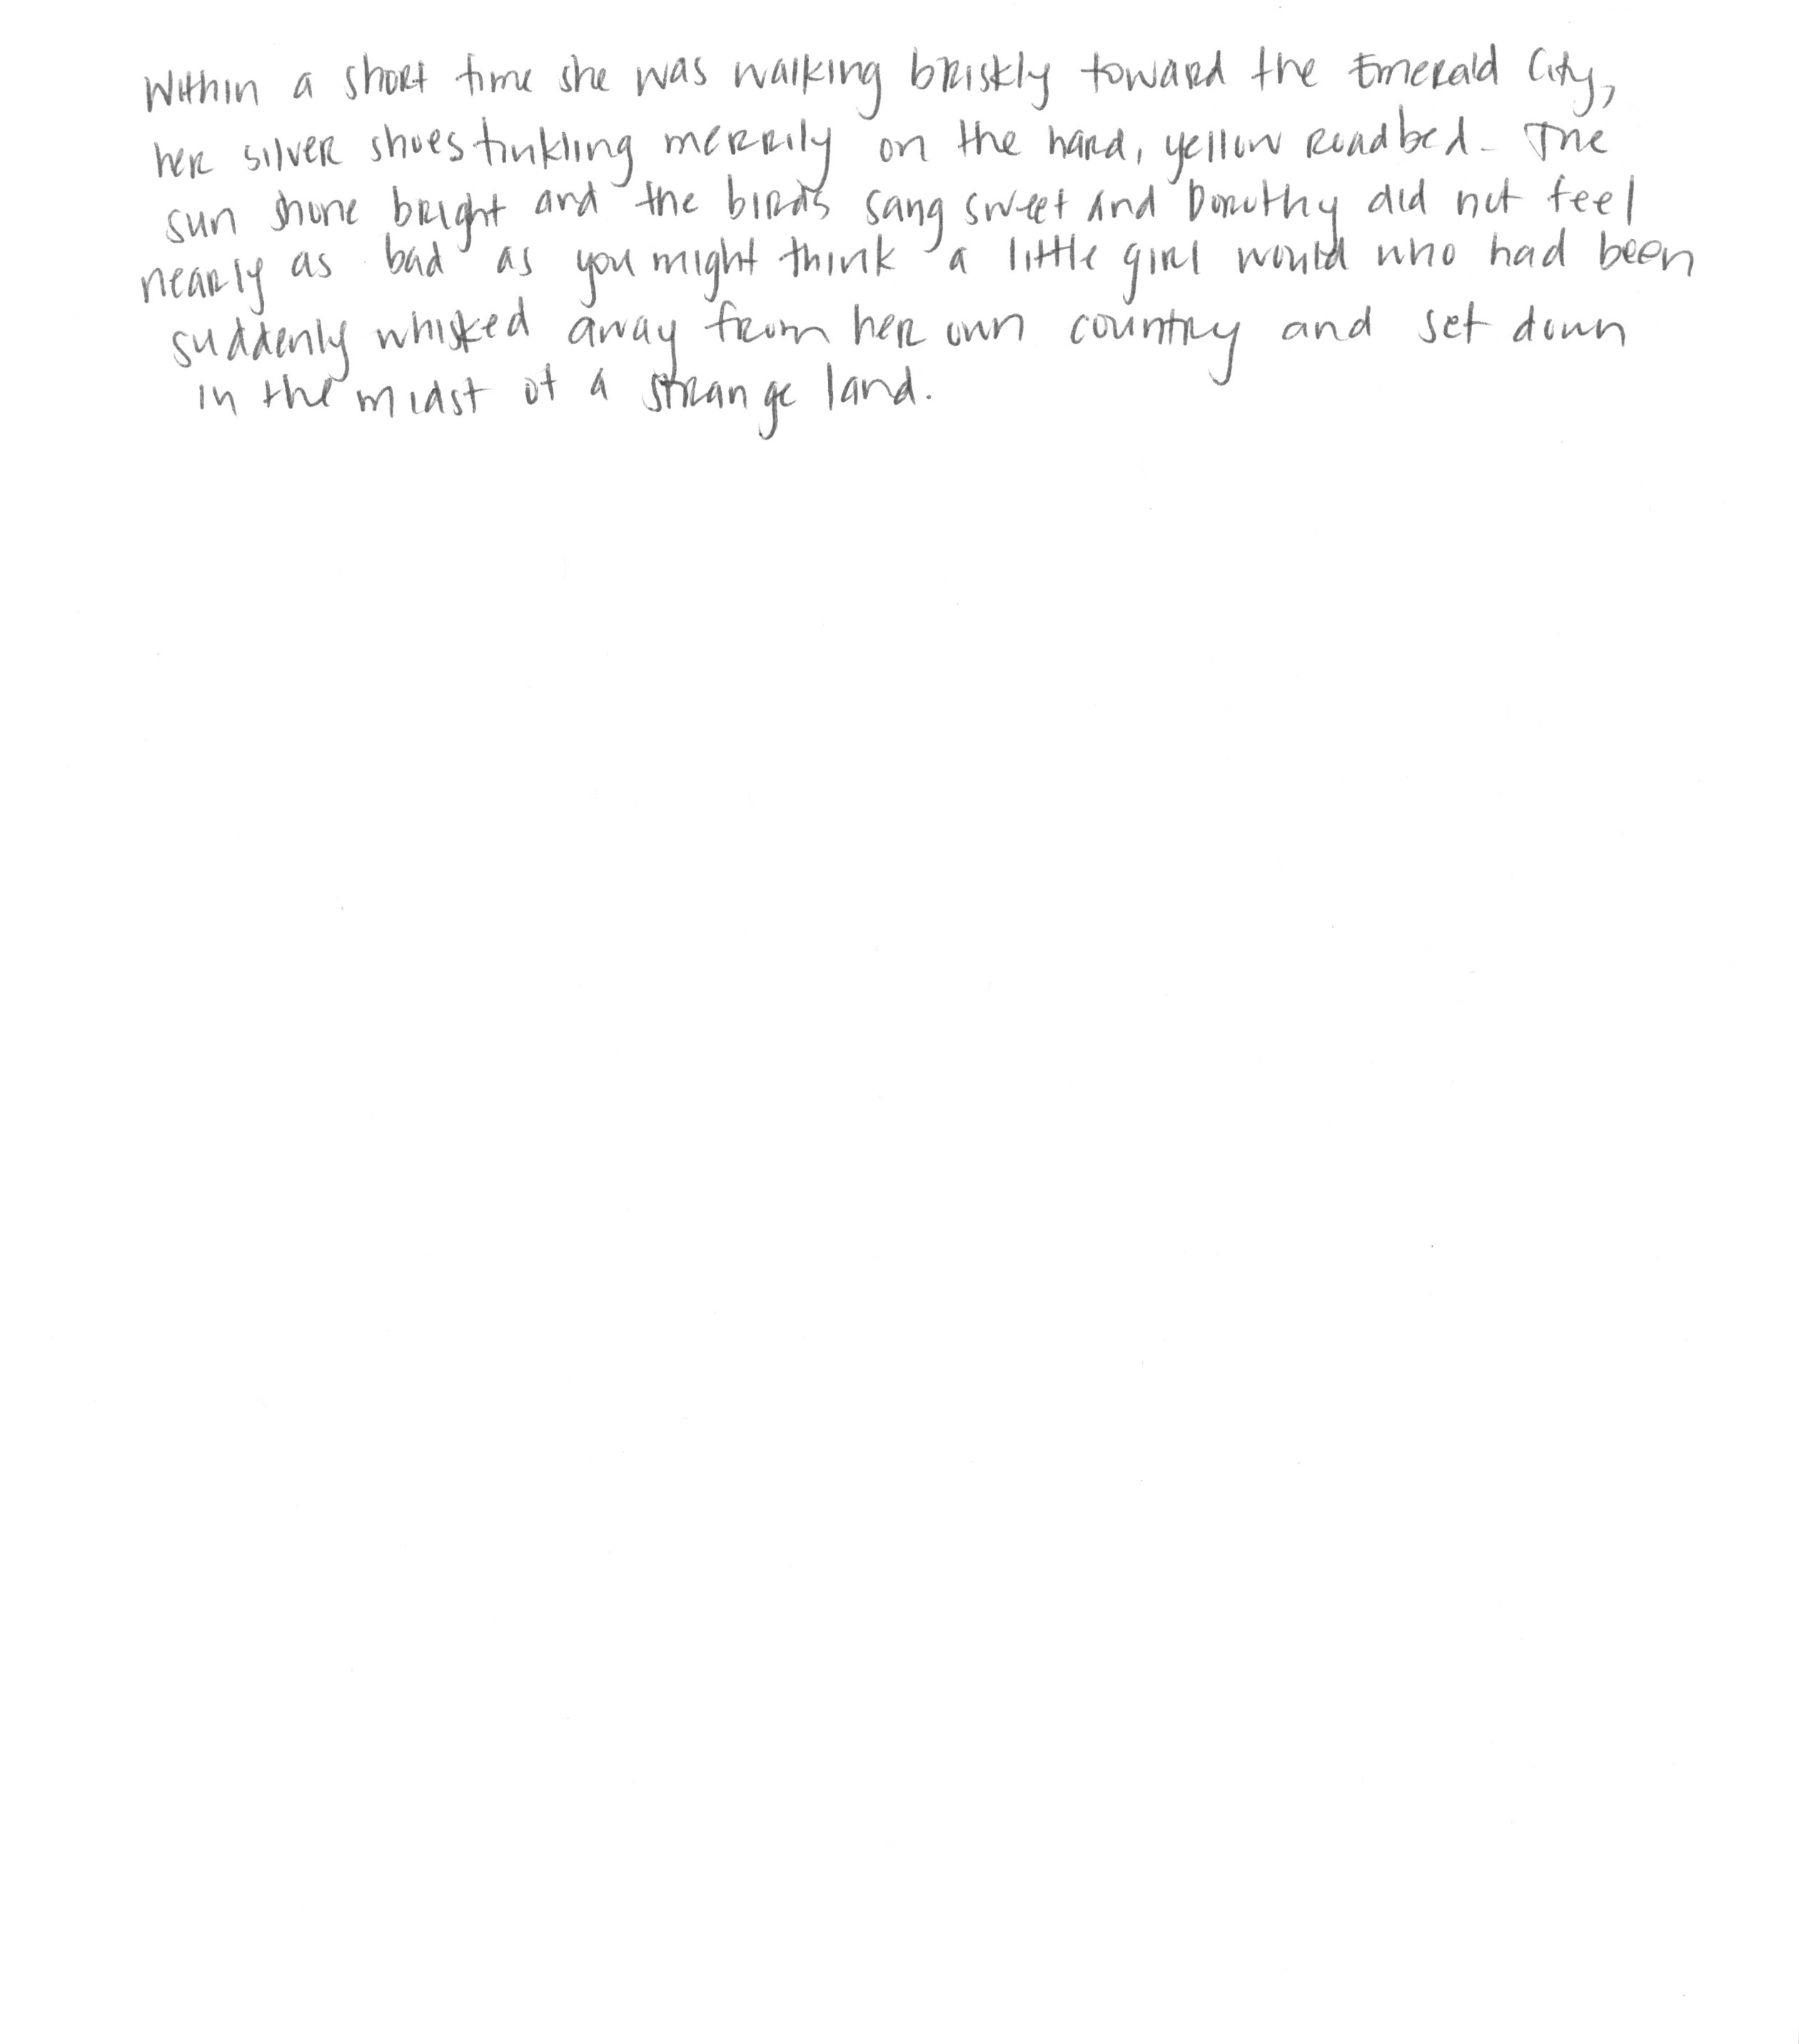 Within a short time she was walking briskly toward the Emerald City,
her silver shoes tinkling merrily on the hard, yellow roadbed. The
sun shone bright and the birds sang sweet and Dorothy did not feel
nearly as bad as you might think a little girl would who had been
suddenly whisked away from her own country and set down
in the midst of a strange land.